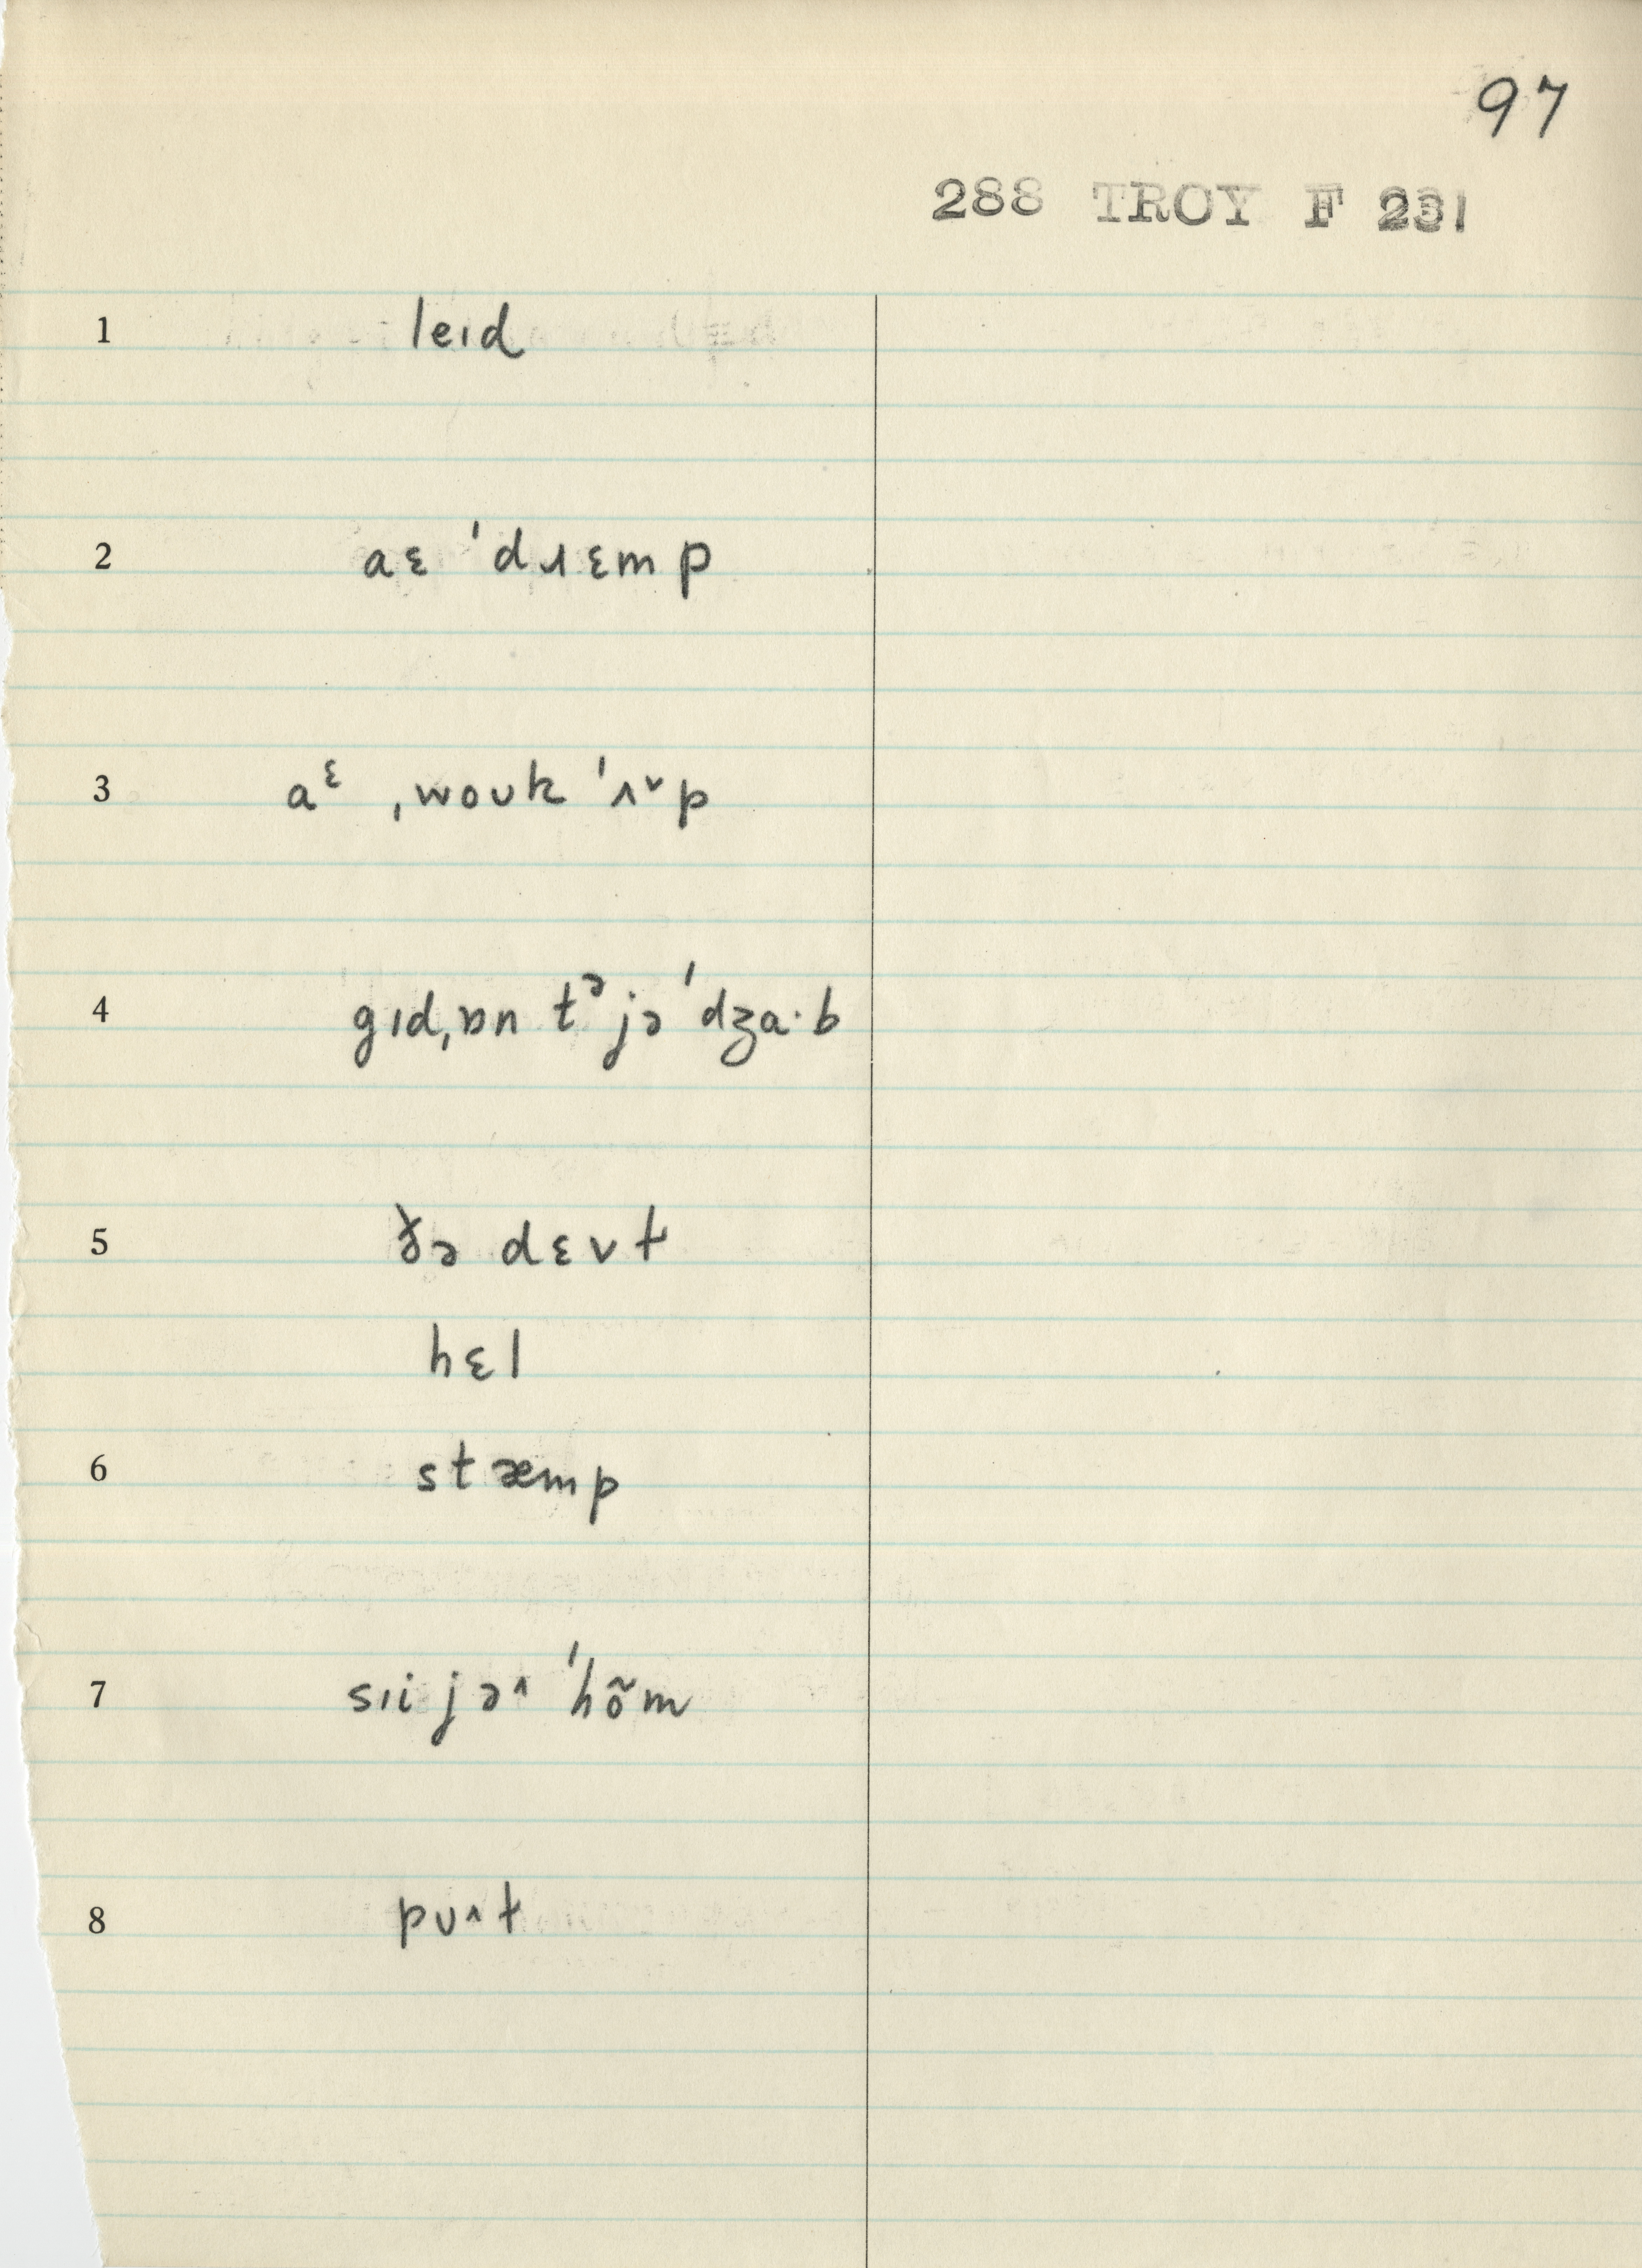 97
288 TROY F 231
1 leɪd
2 aɛ ˈdɹɛmp
3 aᵋ ˌwoʊk ˈʌ˅p
4 gɪdˌɒn tᵊ jə ˈdʒa·b
5 ðə dɛvt
hɛl
6 stæmp
7 sɪi jə^ ˈhõm
8 pʊ^t